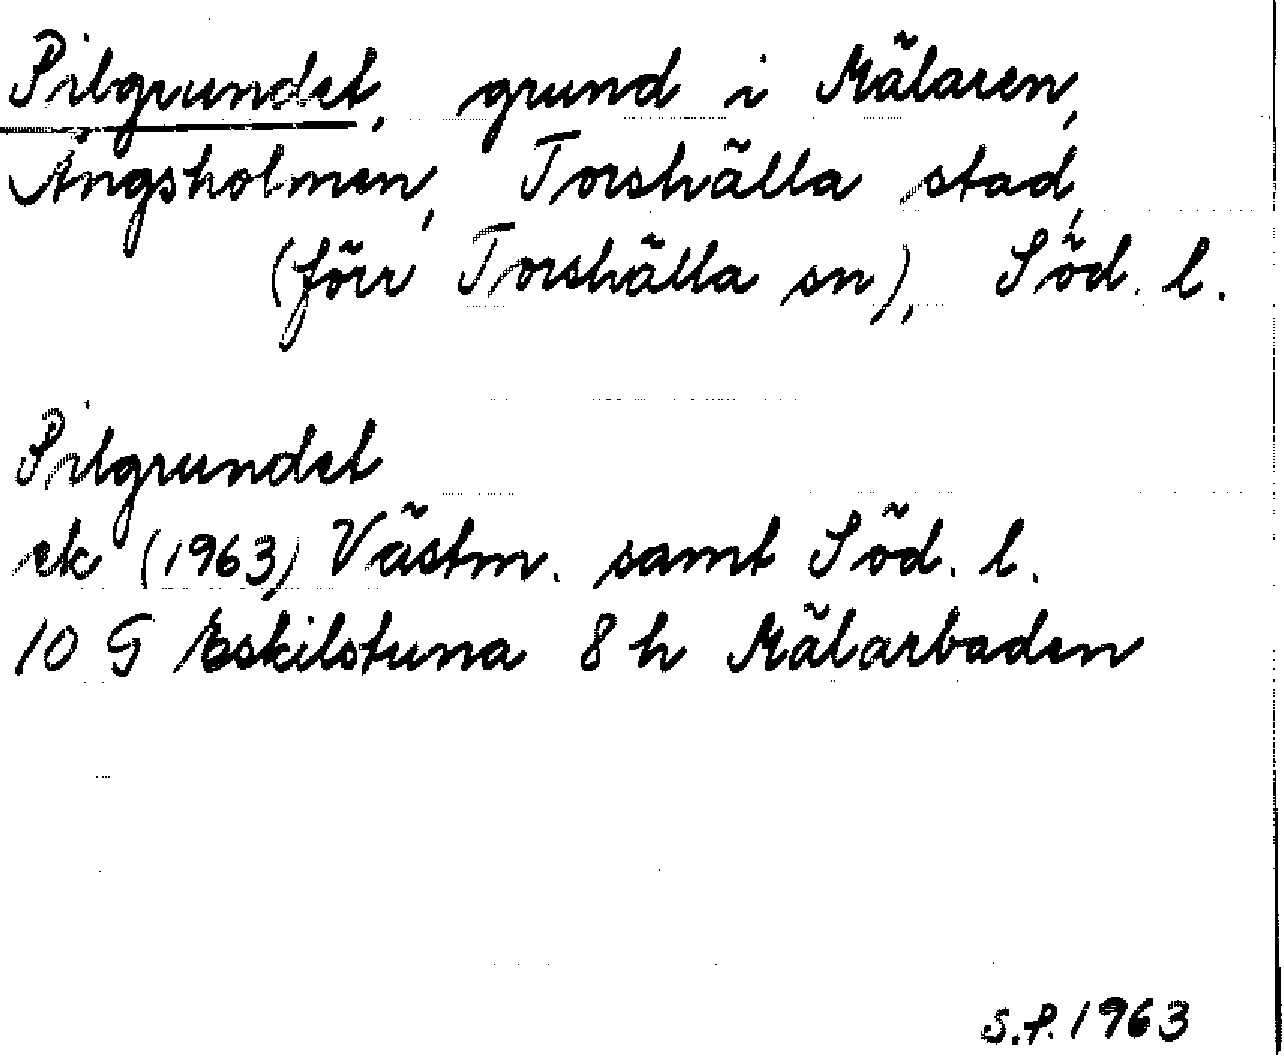 Pilgrundet, grund i Mälaren,
Ängsholmen, Torshälla stad,
(förr Torshälla sn), Söd. l.
Pilgrundet
ek (1963) Västm. samt Söd. l.
10 G Eskilstuna 8 h Mälarbaden
S.P. 1963